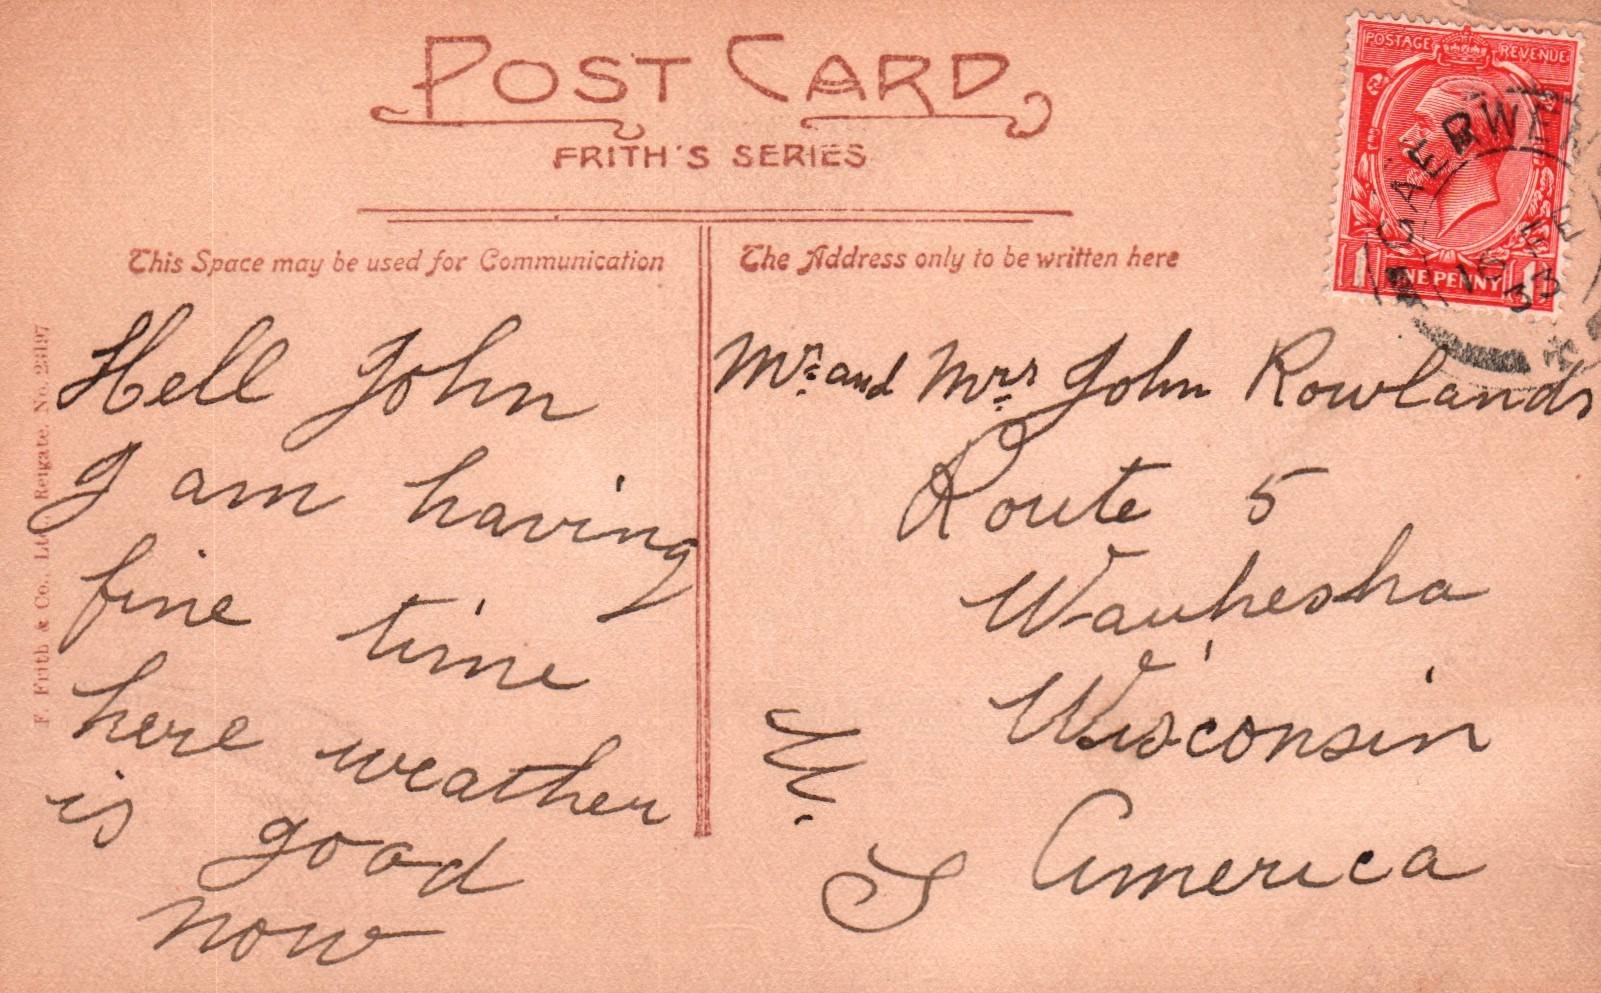 POST CARD
FRITH'S SERIES
POSTAGE REVENUE
1 ONE PENNY 1
GAERWEN
15 SE
33
This Space may be used for Communication
The Address only to be written here
Hell John
I am having
fine time
here weather
is good
now
Mr. and Mrs. John Rowlands
Route 5
Waukesha
Wisconsin
U.
S America
F. Frith & Co., Ltd., Reigate. No. 23197